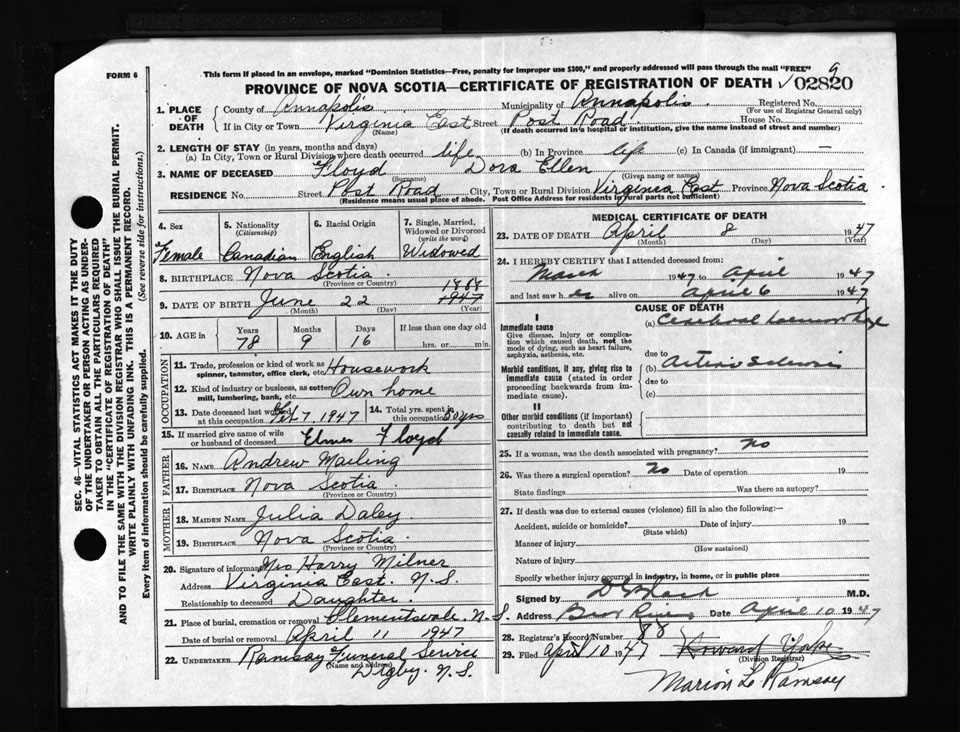 FORM 6
This form if placed in an envelope, marked "Dominion Statistics—Free, penalty for improper use $300," and properly addressed will pass through the mail "FREE"
PROVINCE OF NOVA SCOTIA—CERTIFICATE OF REGISTRATION OF DEATH 02820
9
1. PLACE OF DEATH County of Annapolis Municipality of Annapolis Registered No.
(For use of Registrar General only)
If in City or Town Virginia East Street Post Road House No.
(Name) (If death occurred in a hospital or institution, give the name instead of street and number)
2. LENGTH OF STAY (in years, months and days)
(a) In City, Town or Rural Division where death occurred life (b) In Province life (c) In Canada (if immigrant) —
3. NAME OF DECEASED Floyd Dora Ellen
(Surname) (Given name or names)
RESIDENCE No. Street Post Road City, Town or Rural Division Virginia East Province Nova Scotia
(Residence means usual place of abode. Post Office Address for residents in rural parts not sufficient)
4. Sex 5. Nationality (Citizenship) 6. Racial Origin 7. Single, Married, Widowed or Divorced (write the word)
Female Canadian English Widowed
8. BIRTHPLACE Nova Scotia
(Province or Country)
1868
9. DATE OF BIRTH June 22 1947
(Month) (Day) (Year)
10. AGE in Years Months Days If less than one day old
78 9 16 hrs. or min.
OCCUPATION
11. Trade, profession or kind of work as spinner, teamster, office clerk, etc. Housework
12. Kind of industry or business, as cotten mill, lumbering, bank, etc. Own home
13. Date deceased last worked at this occupation Feb 7, 1947 14. Total yrs. spent in this occupation 50 yrs
15. If married give name of wife or husband of deceased Elmer Floyd
FATHER
16. NAME Andrew Mailing
17. BIRTHPLACE Nova Scotia
(Province or Country)
MOTHER
18. MAIDEN NAME Julia Daley
19. BIRTHPLACE Nova Scotia
(Province or Country)
20. Signature of informant Mrs Harry Milner
Address Virginia East. N.S.
Relationship to deceased Daughter
21. Place of burial, cremation or removal Clementsvale N.S.
Date of burial or removal April 11 1947
22. UNDERTAKER Ramsay Funeral Service
(Name and address) Digby. N.S.
MEDICAL CERTIFICATE OF DEATH
23. DATE OF DEATH April 8 1947
(Month) (Day) (Year)
24. I HEREBY CERTIFY that I attended deceased from:
March 1947 to April 1947
and last saw her alive on April 6 1947
CAUSE OF DEATH
I
Immediate cause (a) Cerebral haemorrhage
Give disease, injury or complication which caused death, not the mode of dying, such as heart failure, asphyxia, asthenia, etc.
due to
Morbid conditions, if any, giving rise to immediate cause (stated in order proceeding backwards from immediate cause). (b) Arterio Sclerosis
due to
(c)
II
Other morbid conditions (if important) contributing to death but not causally related to immediate cause.
25. If a woman, was the death associated with pregnancy? No
26. Was there a surgical operation? No Date of operation 19
State findings Was there an autopsy?
27. If death was due to external causes (violence) fill in also the following:—
Accident, suicide or homicide? Date of injury 19
(State which)
Manner of injury
(How sustained)
Nature of injury
Specify whether injury occurred in industry, in home, or in public place
Signed by M.D.
Address Bear River Date April 10 1947
28. Registrar's Record Number 88
29. Filed April 10 1947 Howard Yorke
(Division Registrar)
Marion L. Ramsay
SEC. 46—VITAL STATISTICS ACT MAKES IT THE DUTY OF THE UNDERTAKER OR PERSON ACTING AS UNDERTAKER TO OBTAIN ALL THE PARTICULARS REQUIRED IN THE "CERTIFICATE OF REGISTRATION OF DEATH"
AND TO FILE THE SAME WITH THE DIVISION REGISTRAR WHO SHALL ISSUE THE BURIAL PERMIT.
WRITE PLAINLY WITH UNFADING INK. THIS IS A PERMANENT RECORD.
Every item of information should be carefully supplied. (See reverse side for instructions.)